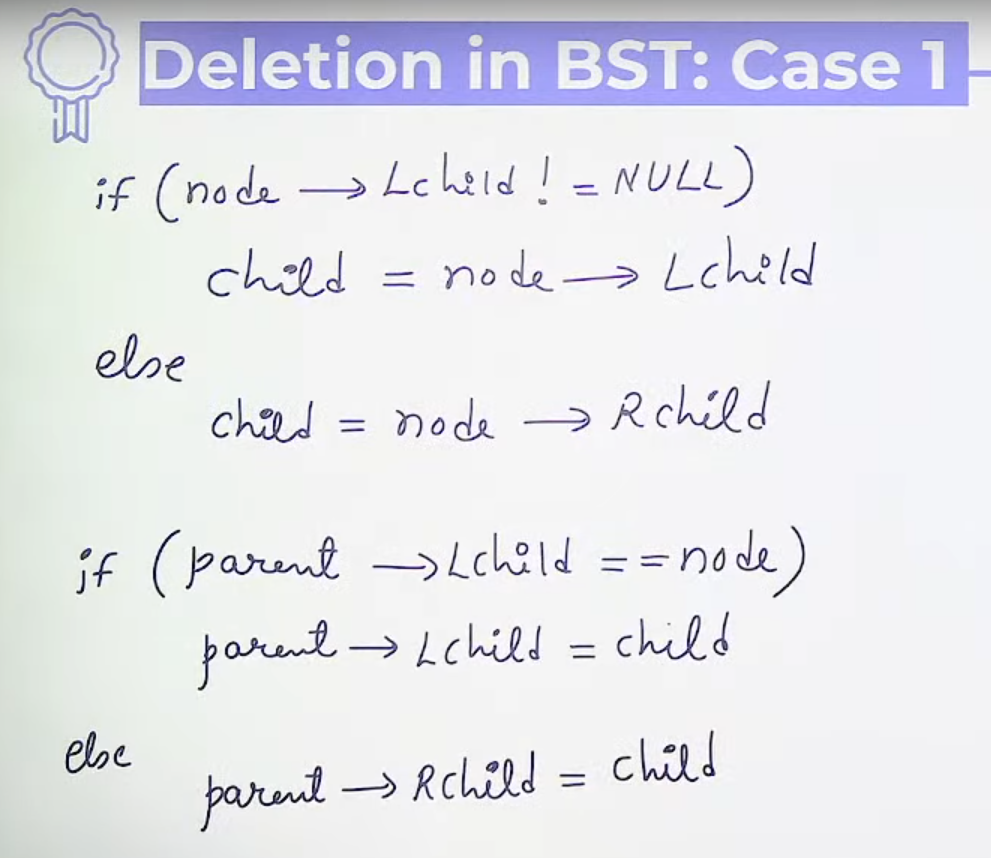 Deletion in BST: Case 1
if (node → Lchild != NULL)
child = node → Lchild
else
child = node → Rchild
if (parent → Lchild == node)
parent → Lchild = child
else
parent → Rchild = child